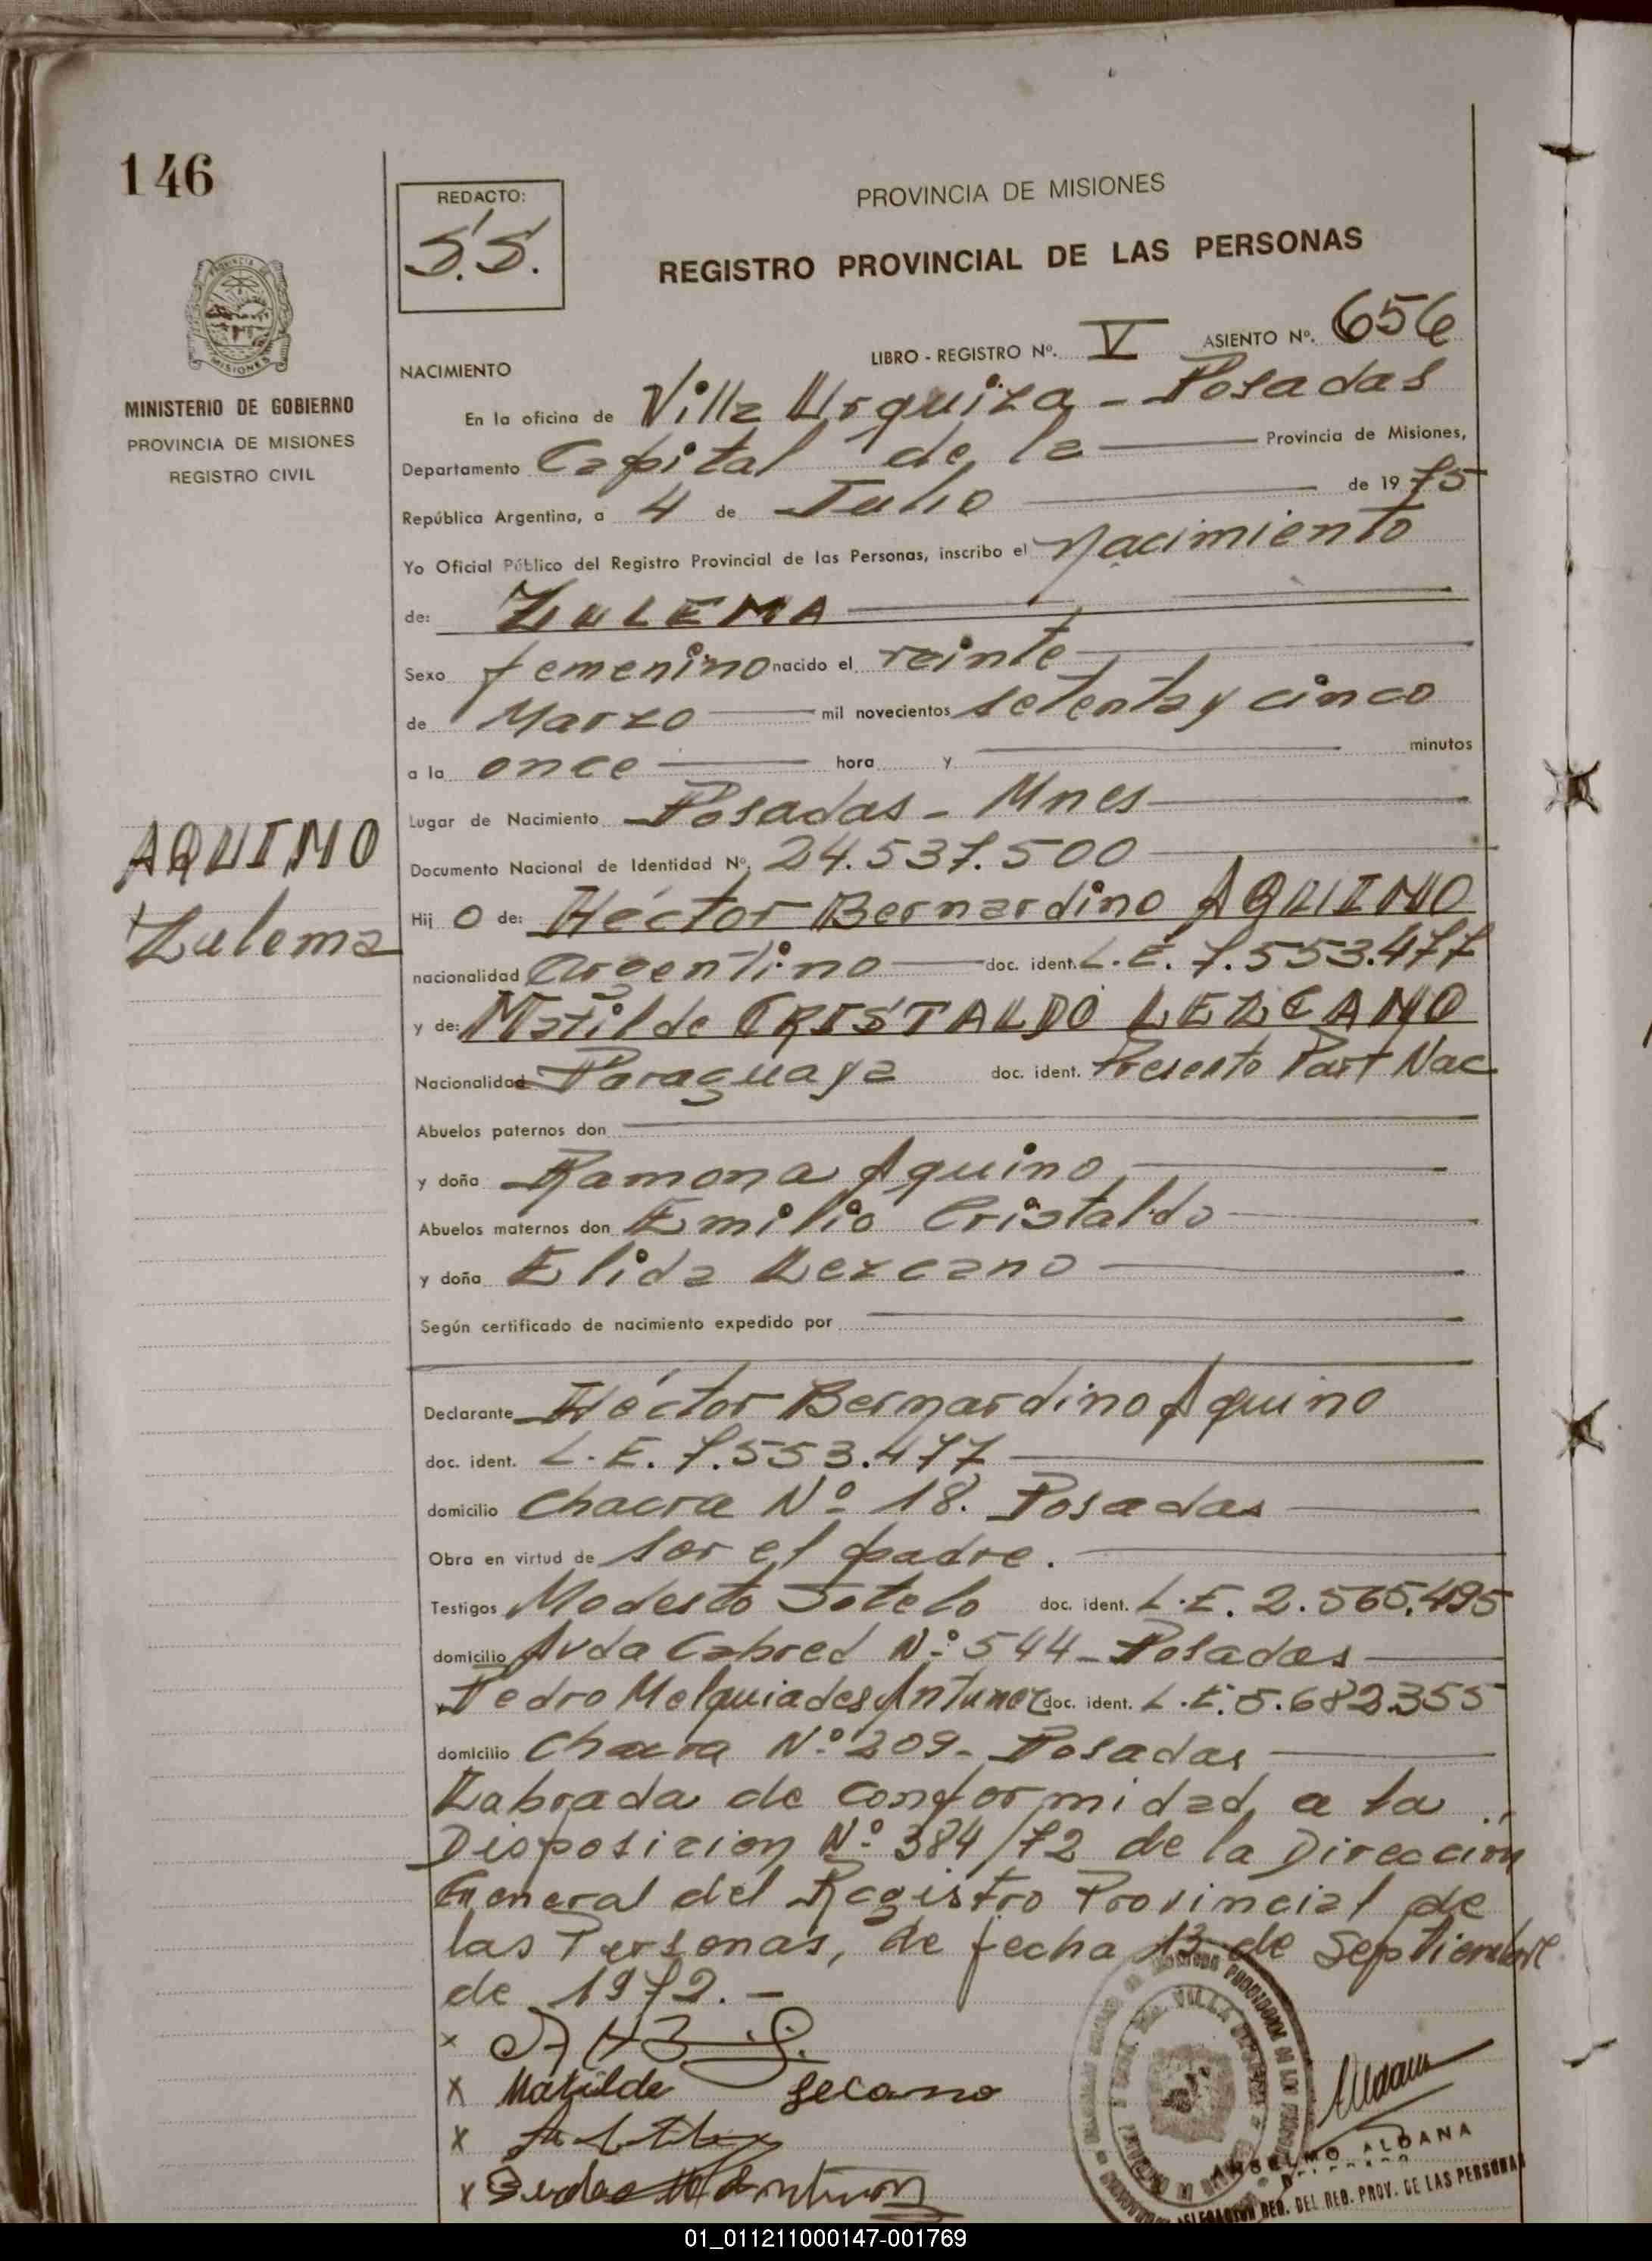 146
REDACTO:
S.S.
PROVINCIA DE MISIONES
REGISTRO PROVINCIAL DE LAS PERSONAS
MINISTERIO DE GOBIERNO
PROVINCIA DE MISIONES
REGISTRO CIVIL
LIBRO - REGISTRO Nº. V ASIENTO Nº. 656
NACIMIENTO
En la oficina de Villa Urquiza - Posadas
Departamento Capital de la Provincia de Misiones,
República Argentina, a 4 de Julio de 1975
Yo Oficial Público del Registro Provincial de las Personas, inscribo el Nacimiento
de: ZULEMA
Sexo femenino nacido el veinte
de Marzo mil novecientos setenta y cinco
a la once hora y minutos
Lugar de Nacimiento Posadas - Mnes
AQUINO
Zulema
Documento Nacional de Identidad Nº. 24.537.500
Hij o de: Héctor Bernardino AQUINO
nacionalidad Argentino doc. ident. L.E. 7.553.477
y de: Matilde CRISTALDO LEZCANO
Nacionalidad Paraguaya doc. ident. Presento Part Nac
Abuelos paternos don
y doña Ramona Aquino
Abuelos maternos don Emilio Cristaldo
y doña Elida Lezcano
Según certificado de nacimiento expedido por
Declarante Héctor Bernardino Aquino
doc. ident. L.E. 7.553.477
domicilio Chacra Nº 18. Posadas
Obra en virtud de ser el padre.
Testigos Modesto Sotelo doc. ident. L.E. 2.565.495
domicilio Avda Cabred Nº 544 - Posadas
Pedro Melquiades Antunez doc. ident. L.E. 5.682.355
domicilio Chacra Nº 209 - Posadas
Labrada de conformidad a la
Disposicion Nº 384/72 de la Dirección
General del Registro Provincial de
las Personas, de fecha 13 de Septiembre
de 1972.-
x
x Matilde Lecano
x
x
ANSELMO ALDANA
DELEGADO
REG. DEL REG. PROV. DE LAS PERSONAS
01_011211000147-001769